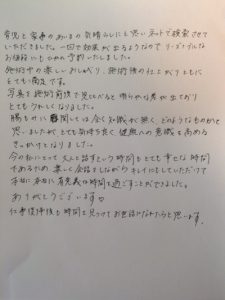 育児と家事のあいまの気晴らしにと思いネットで検索させて
いただきました。一回で効果が出るようなのでリーズナブルな
お値段にもひかれ予約いたしました。
施術中の楽しいおしゃべり、施術後の仕上がりともに
とても満足です。
写真を施術前後で見比べると明らかな差が出ており
とてもうれしくなりました。
腸もみに関しては全く知識が無く、どのようなものかと
思いましたが、とても気持ち良く健康への意識も高める
きっかけとなりました。
今の私にとって大人と話すという時間もとても幸せな時間
であるため、楽しく会話をしながらキレイにもしていただけて
本当に本当に有意義な時間を過ごすことができました。
ありがとうございます
仕事復帰後も時間を見つけてお世話になれたらと思います。